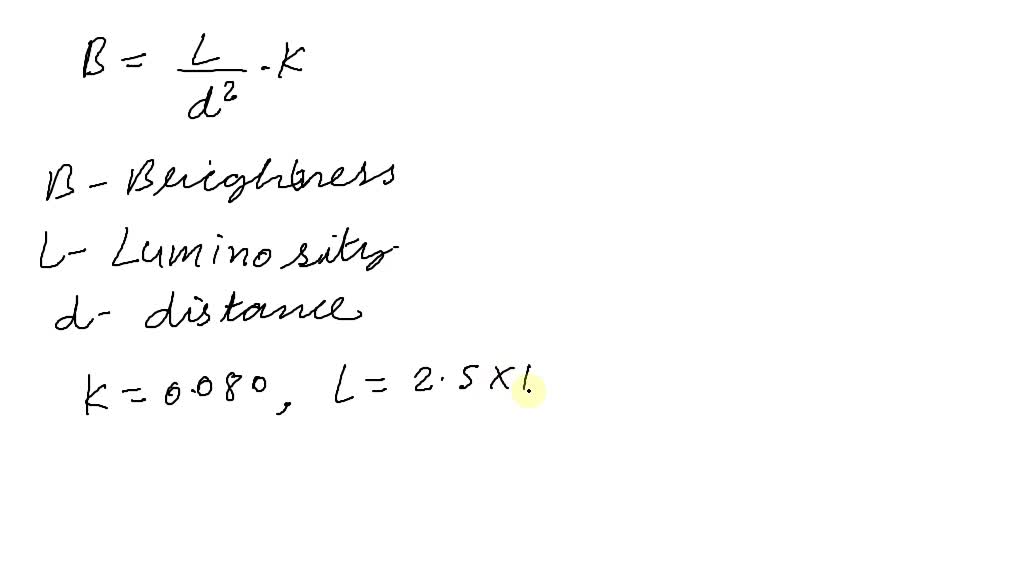 B = L/d² · K
B - Brightness
L - Luminosity
d - distance
K = 0.080, L = 2.5 × 1